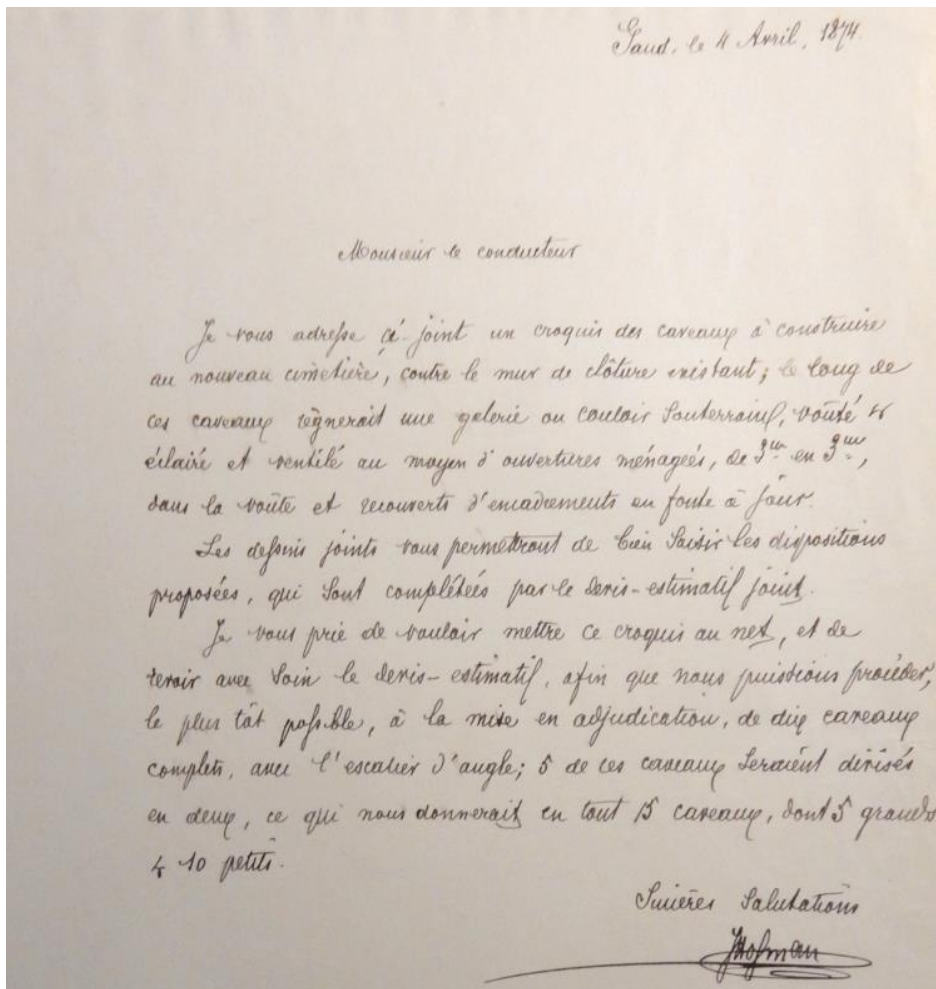 Gand, le 4 Avril, 1874.
Monsieur le conducteur
Je vous adresse çi-joint un croquis des caveaux à construire
au nouveau cimetière, contre le mur de clôture existant; le long de
ces caveaux règnerait une galerie ou couloir souterrain, voûté &
éclairé et ventilé au moyen d'ouvertures ménagées, de 3m en 3m,
dans la voûte et recouverts d'encadrements en fonte à jour.
Les dessins joints vous permettront de bien saisir les dispositions
proposées, qui sont complétées par le devis-estimatif joint.
Je vous prie de vouloir mettre ce croquis au net, et de
revoir avec soin le devis-estimatif, afin que nous puissions procéder,
le plus tôt possible, à la mise en adjudication, de dix caveaux
complets, avec l'escalier d'angle; 5 de ces caveaux seraient divisés
en deux, ce qui nous donnerait en tout 15 caveaux, dont 5 grands
& 10 petits.
Sincères Salutations
JHofman